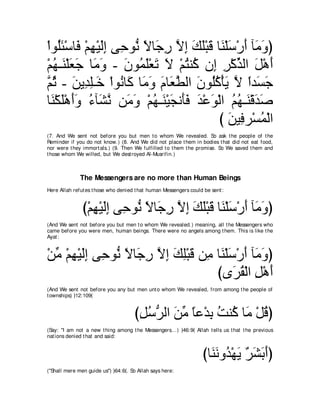 ﴿وَمَآ أَرْسَلْنَا قَبْلَكَ إِلاَّ رِجَالاً نُّوحِى إِلَيْهِمْ فَاسْئَلُواْ
أَهْلَ الذِّكْرِ إِن كُنتُمْ لاَ تَعْلَمُونَ - وَمَا جَعَلْنَـهُمْ
جَسَداً لاَّ يَأْكُلُونَ الطَّعَامَ وَمَا كَانُواْ خَـلِدِينَ - ثُمَّ
صَدَقْنَـهُمُ الْوَعْدَ فَأَنجَيْنَـهُمْ وَمَن نَّشَآءُ وَأَهْلَكْنَا
الْمُسْرفِينَ ﴾
(7. And We sent not before you but men to whom We revealed. So ask the people of the
Reminder if you do not know.) (8. And We did not place them in bodies that did not eat food,
nor were they immortals.) (9. Then We fulfilled to them the promise. So We saved them and
those whom We willed, but We destroyed Al-Musrifin.)
The Messengers are no more than Human Beings
Here Allah refutes those who denied that human Messengers could be sent:
﴿وَمَآ أَرْسَلْنَا قَبْلَكَ إِلاَّ رِجَالاً نُّوحِى إِلَيْهِمْ﴾
(And We sent not before you but men to whom We revealed.) meaning, all the Messengers who
came before you were men, human beings. There were no angels among them. This is like the
Ayat:
﴿وَمَآ أَرْسَلْنَا مِن قَبْلِكَ إِلاَّ رِجَالاً نُّوحِى إِلَيْهِمْ مِّنْ
أَهْلِ الْقُرَى﴾
(And We sent not before you any but men unto whom We revealed, from among the people of
townships) [12:109(
﴿قُلْ مَا كُنتُ بِدْعاً مِّنَ الرُّسُلِ﴾
(Say: "I am not a new thing among the Messengers...) )46:9( Allah tells us that the previous
nations denied that and said:
﴿أَبَشَرٌ يَهْدُونَنَا﴾
("Shall mere men guide us") )64:6(. So Allah says here: